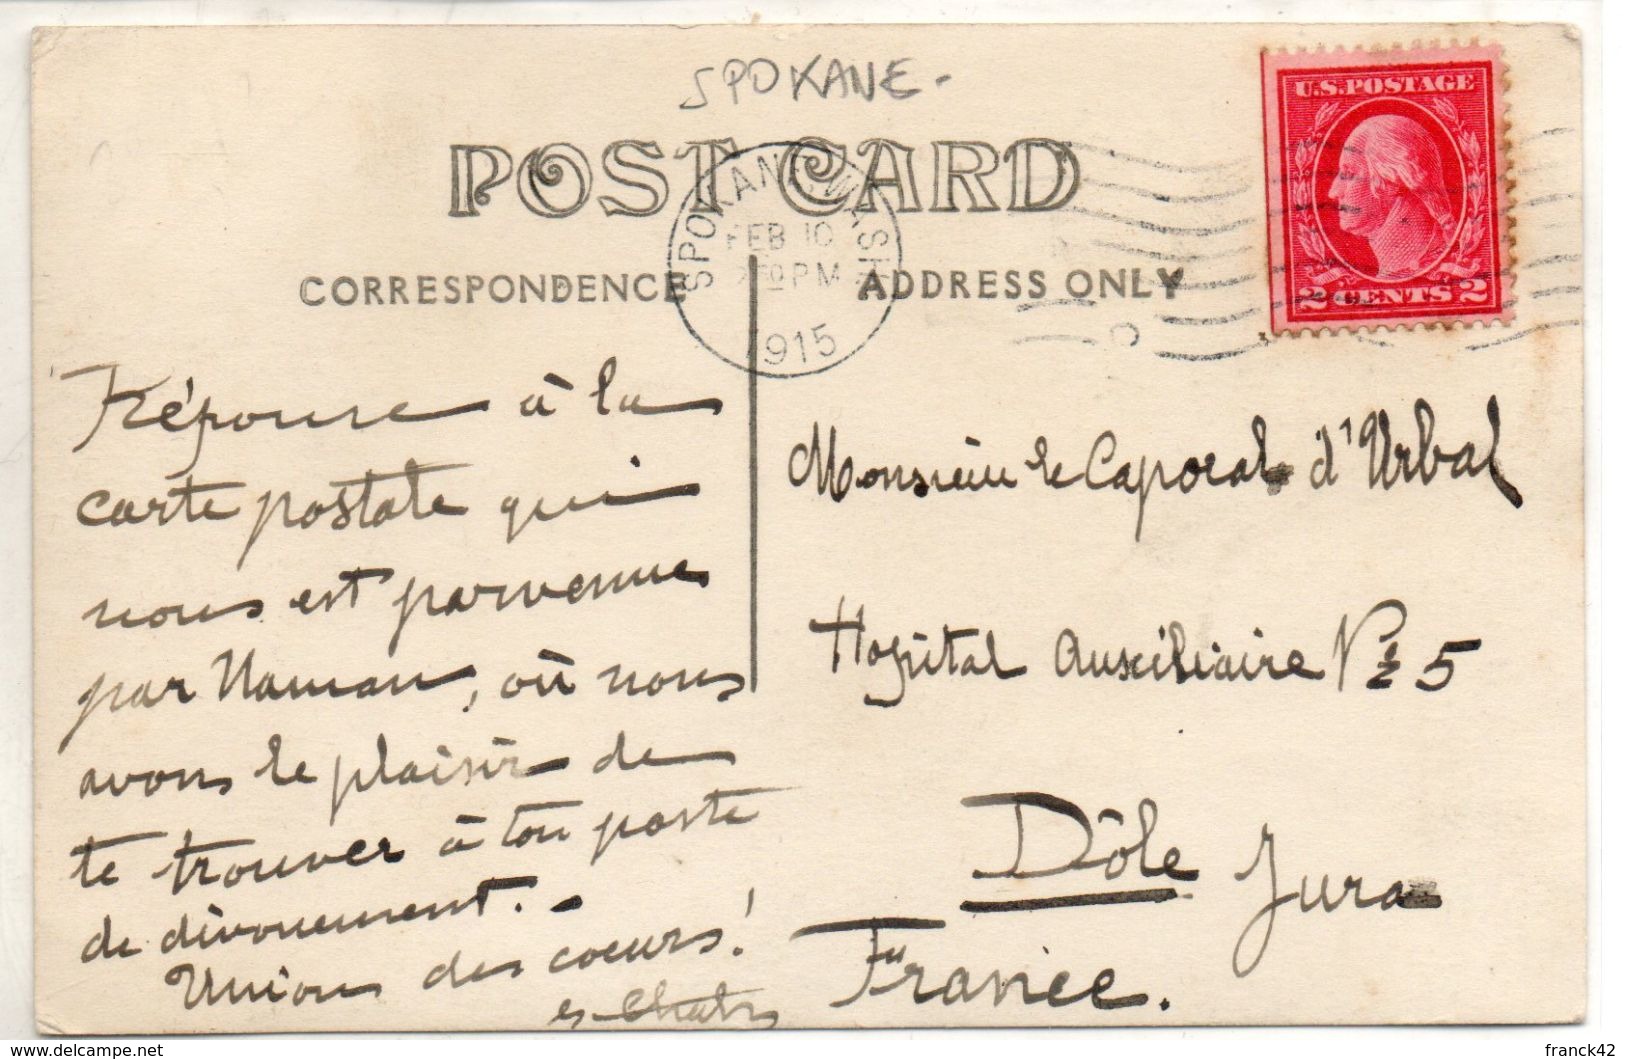 SPOKANE -
POST CARD
CORRESPONDENCE
ADDRESS ONLY
SPOKANE, WASH.
FEB 10
PM
1915
U.S. POSTAGE
2 CENTS 2
Réponse à la
carte postale qui
nous est parvenue
par Maman, où nous
avons le plaisir de
te trouver à ton poste
de dévouement. -
Union des coeurs!
Monsieur le Caporal d'Urbal
Hopital Auxiliaire No 5
Dôle Jura
France.
delcampe.net
franck42